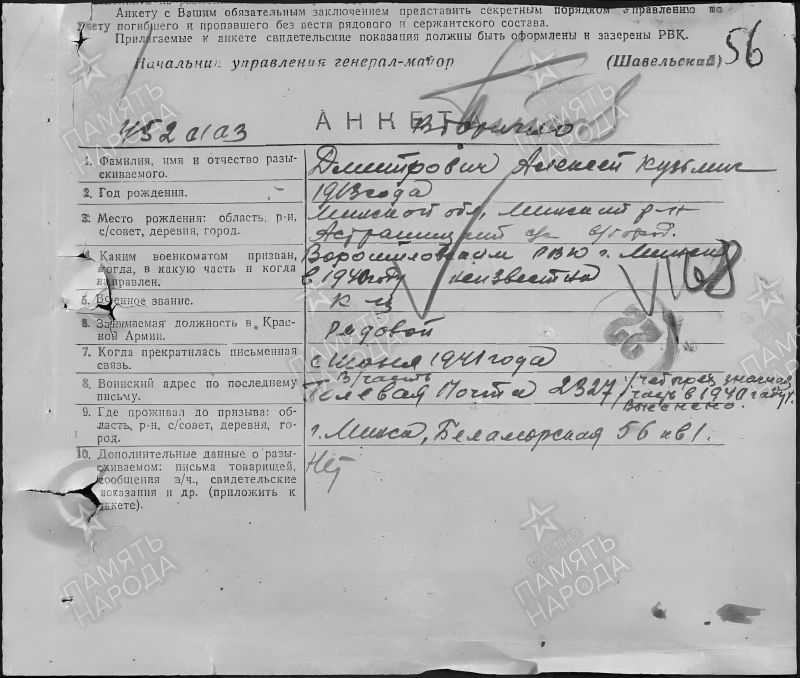 Анкету с Вашим обязательным заключением представить секретным порядком Управлению по
учету погибшего и пропавшего без вести рядового и сержантского состава.
Прилагаемые к анкете свидетельские показания должны быть оформлены и заверены РВК.
Начальник управления генерал-майор (Шавельский) 56
АНКЕТА Вторично
1. Фамилия, имя и отчество разы-
скиваемого. Дмитрович Алексей Кузьмич
2. Год рождения. 1913 года
3. Место рождения: область, р-н, Минской обл, Минский р-н
с/совет, деревня, город. с/с
4. Каким военкоматом призван, Ворошиловским РВК г. Минска
когда, в какую часть и когда в 1940 году неизвестна
направлен.
5. Военное звание.
6. Занимаемая должность в Крас- Рядовой
ной Армии.
7. Когда прекратилась письменная с Июня 1941 года
связь.
8. Воинский адрес по последнему Полевая Почта 2327
письму.
9. Где проживал до призыва: об- г. Минск, Беламорская 56 кв 1.
ласть, р-н, с/совет, деревня, го-
род.
10. Дополнительные данные о разы- Нет
скиваемом: письма товарищей,
сообщения в/ч., свидетельские
показания и др. (приложить к
анкете).
ПАМЯТЬ
НАРОДА